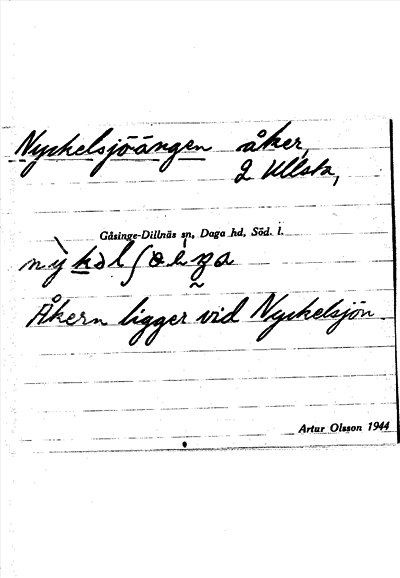 Nyckelsjöängen åker,
2 Ullsta,
Gåsinge-Dillnäs sn, Daga hd, Söd. l.
Åkern ligger vid Nyckelsjön.
Artur Olsson 1944